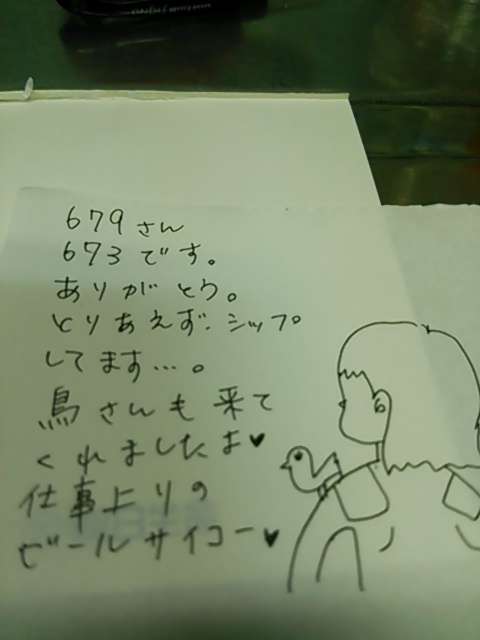 679さん
673です。
ありがとう。
とりあえず、シップ
してます…。
鳥さんも来て
くれましたよ♥
仕事上りの
ビールサイコー♥